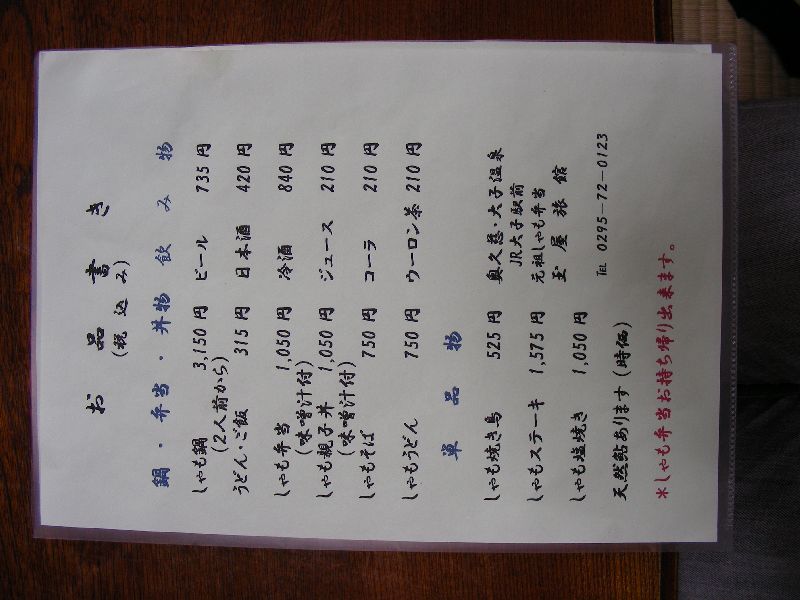 お品書き
(税込み)
鍋・弁当・丼物
しゃも鍋 3,150円
(2人前から)
うどん・ご飯 315円
しゃも弁当 1,050円
(味噌汁付)
しゃも親子丼 1,050円
(味噌汁付)
しゃもそば 750円
しゃもうどん 750円
単品物
しゃも焼き鳥 525円
しゃもステーキ 1,575円
しゃも塩焼き 1,050円
天然鮎あります(時価)
※しゃも弁当お持ち帰り出来ます。
飲み物
ビール 735円
日本酒 420円
冷酒 840円
ジュース 210円
コーラ 210円
ウーロン茶 210円
奥久慈・大子温泉
JR大子駅前
元祖しゃも弁当
玉屋旅館
TEL 0295-72-0123